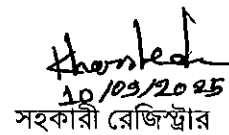 Khorshed
10/03/2025
সহকারী রেজিস্ট্রার